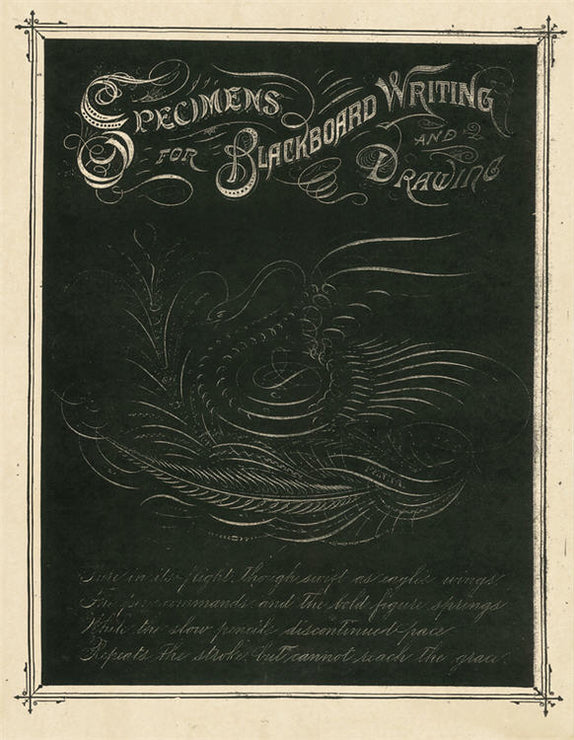 SPECIMENS
FOR BLACKBOARD WRITING
AND
DRAWING
Sure in its flight though swift as eagles' wings
The pen commands and the bold figure springs
While the slow pencil's discontinued pace
Repeats the stroke but cannot reach the grace.